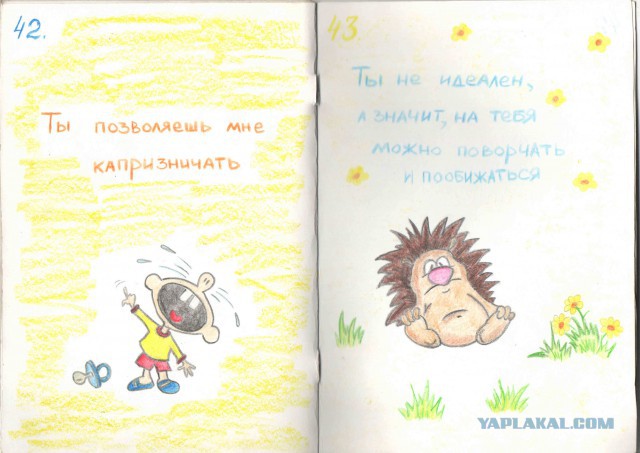 42.
Ты позволяешь мне
капризничать
43.
Ты не идеален,
а значит, на тебя
можно поворчать
и пообижаться
YAPLAKAL.COM